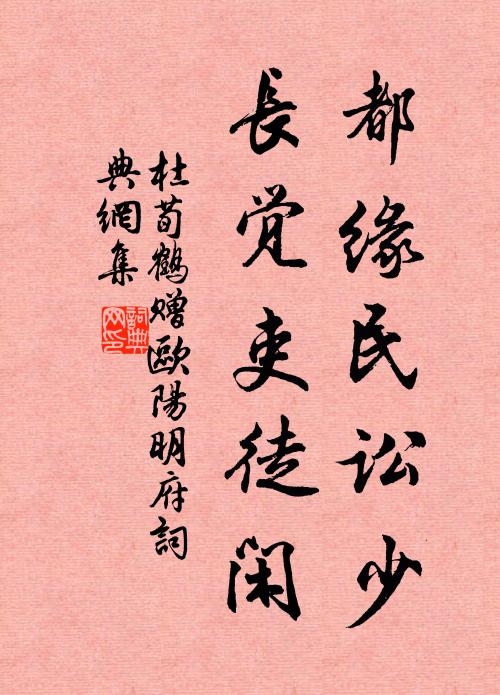 都缘民讼少
長覚吏徒閑
杜荀鶴赠歐陽明府詞
典網集
詞典网印